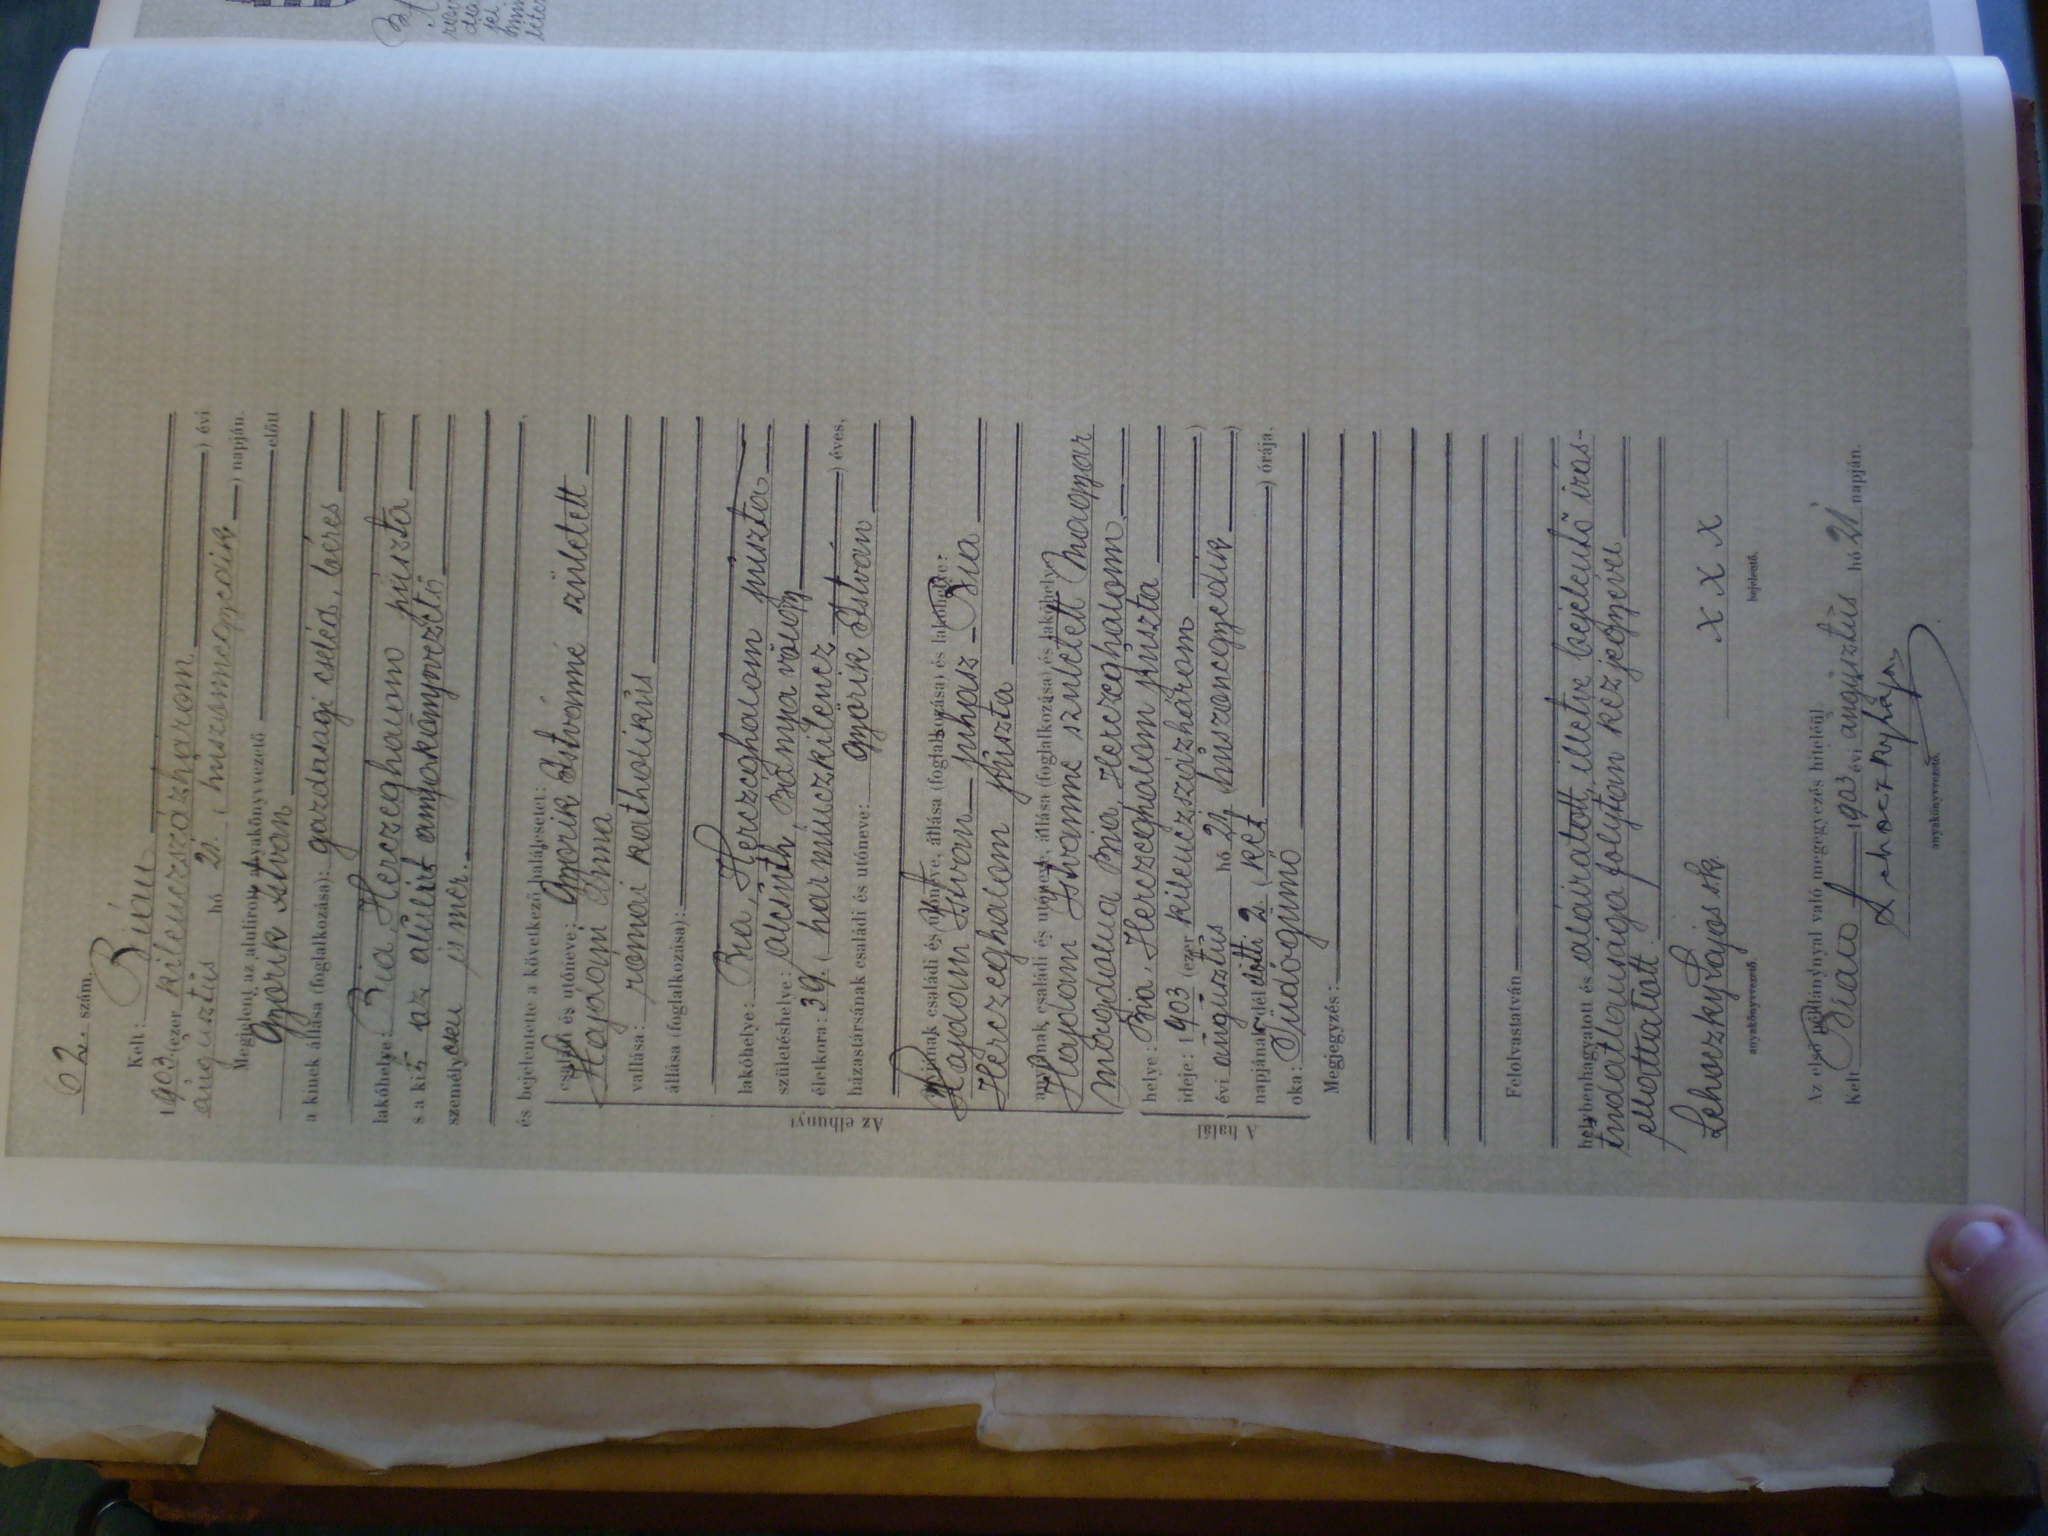 62. szám.
Kelt: Bián
1903 (ezer kilenczszázhárom ) évi
augusztus hó 21. ( huszonnegyedik ) napján.
Megjelent az alulirott anyakönyvvezető előtt
Györik István
a kinek állása (foglalkozása): gazdasági cseléd, béres
lakóhelye: Bia, Herczeghalom puszta
s a kit az alulirt anyakönyvvezető
személyesen ismer.
és bejelentette a következő halálesetet:
Az elhunyt
családi és utóneve: Györik Istvánné született
Hajdom Anna
vallása: romai katholikus
állása (foglalkozása):
lakóhelye: Bia, Herczeghalom puszta
születéshelye: Alcsuth, Bánya völgy
életkora: 39. ( harminczkilencz ) éves,
házastársának családi és utóneve: Györik István
atyjának családi és utóneve, állása (foglalkozása) és lakóhelye:
Hajdom István juhász Bia
Herczeghalom puszta
anyjának családi és utóneve, állása (foglalkozása) és lakóhelye:
Hajdom Istvánné született Magyar
Magdolna Bia, Herczeghalom
A halál
helye: Bia, Herczeghalom puszta
ideje: 1903 (ezer kilenczszázhárom )
évi augusztus hó 21. huszonegyedik )
napjának dél előtti 2. ( két ) órája,
oka: Tüdőgümő
Megjegyzés:
Felolvastatván
helybenhagyatott és aláiratott, illetve bejelentő irás-
tudatlansága folytán kézjegyével
ellátatott.
Lehoczky Lajos sk. x x x
anyakönyvvezető. bejelentő.
Az első példánynyal való megegyezés hiteléül
Kelt Bián 1903 évi augusztus hó 21 napján.
Lehoczky Lajos
anyakönyvvezető.